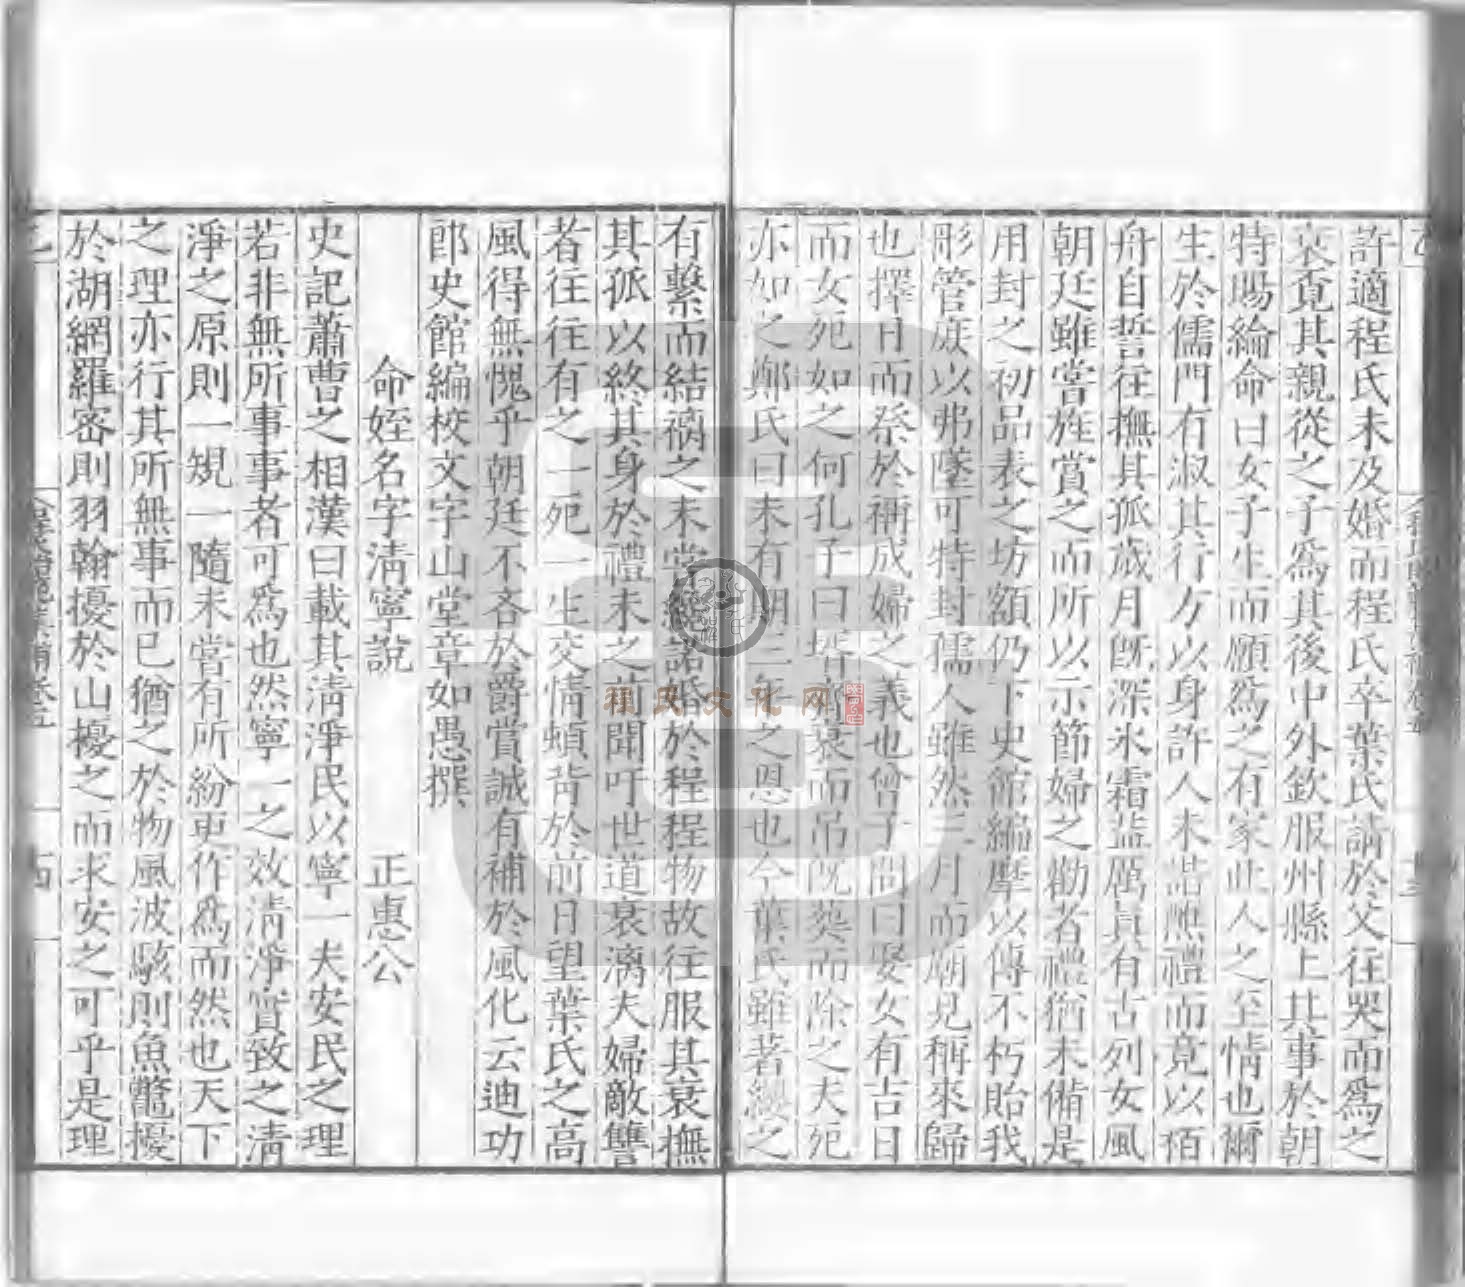 許適程氏未及婚而程氏卒葉氏請於父往哭而爲之
衰竟其親從之子爲其後中外欽服州縣上其事於朝
特賜綸命曰女子生而願爲之有家此人之至情也爾
生於儒門有淑其行方以身許人未諧醮禮而竟以栢
舟自誓往撫其孤歲月旣深氷霜益厲眞有古列女風
朝廷雖嘗旌賞之而所以示節婦之勸者禮猶未備是
用封之初品表之坊額仍下史館編摩以傳不朽貽我
彤管庶以弗墜可特封孺人雖然三月而廟見稱來歸
也擇日而祭於禰成婦之義也曾子問曰娶女有吉日
而女死如之何孔子曰壻齊衰而吊旣葬而除之夫死
亦如之鄭氏曰未有期三年之恩也今葉氏雖著纓之
有繫而結褵之未嘗經諾婚於程程物故往服其衰撫
其孤以終其身於禮未之前聞吁世道衰漓夫婦敵讐
者往往有之一死一生交情頓背於前日望葉氏之高
風得無愧乎朝廷不吝於爵賞誠有補於風化云迪功
郎史館編校文字山堂章如愚撰
命姪名字清寧說 正惠公
史記蕭曹之相漢曰載其清淨民以寧一夫安民之理
若非無所事事者可爲也然寧一之效清淨實致之清
淨之原則一規一隨未嘗有所紛更作爲而然也天下
之理亦行其所無事而已猶之於物風波駭則魚鼈擾
於湖網羅密則羽翰擾於山擾之而求安之可乎是理
程氏文化网